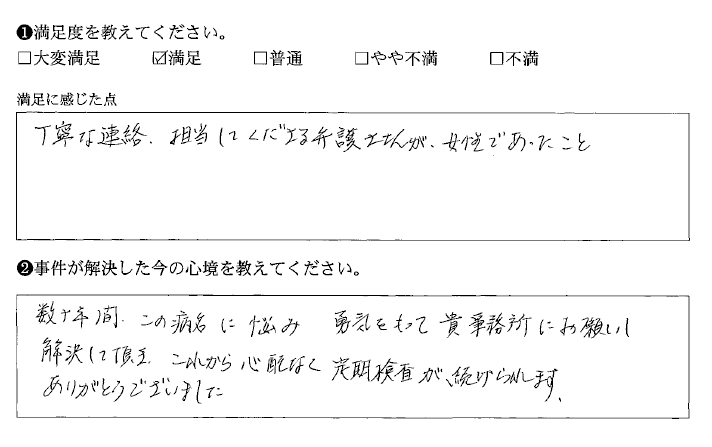 ❶満足度を教えてください。
□大変満足 ☑満足 □普通 □やや不満 □不満
満足に感じた点
丁寧な連絡、担当してくださる弁護士さんが、女性であったこと
❷事件が解決した今の心境を教えてください。
数十年間、この病名に悩み 勇気をもって貴事務所にお願いし
解決して頂き これから心配なく定期検査が、続けられます。
ありがとうございました